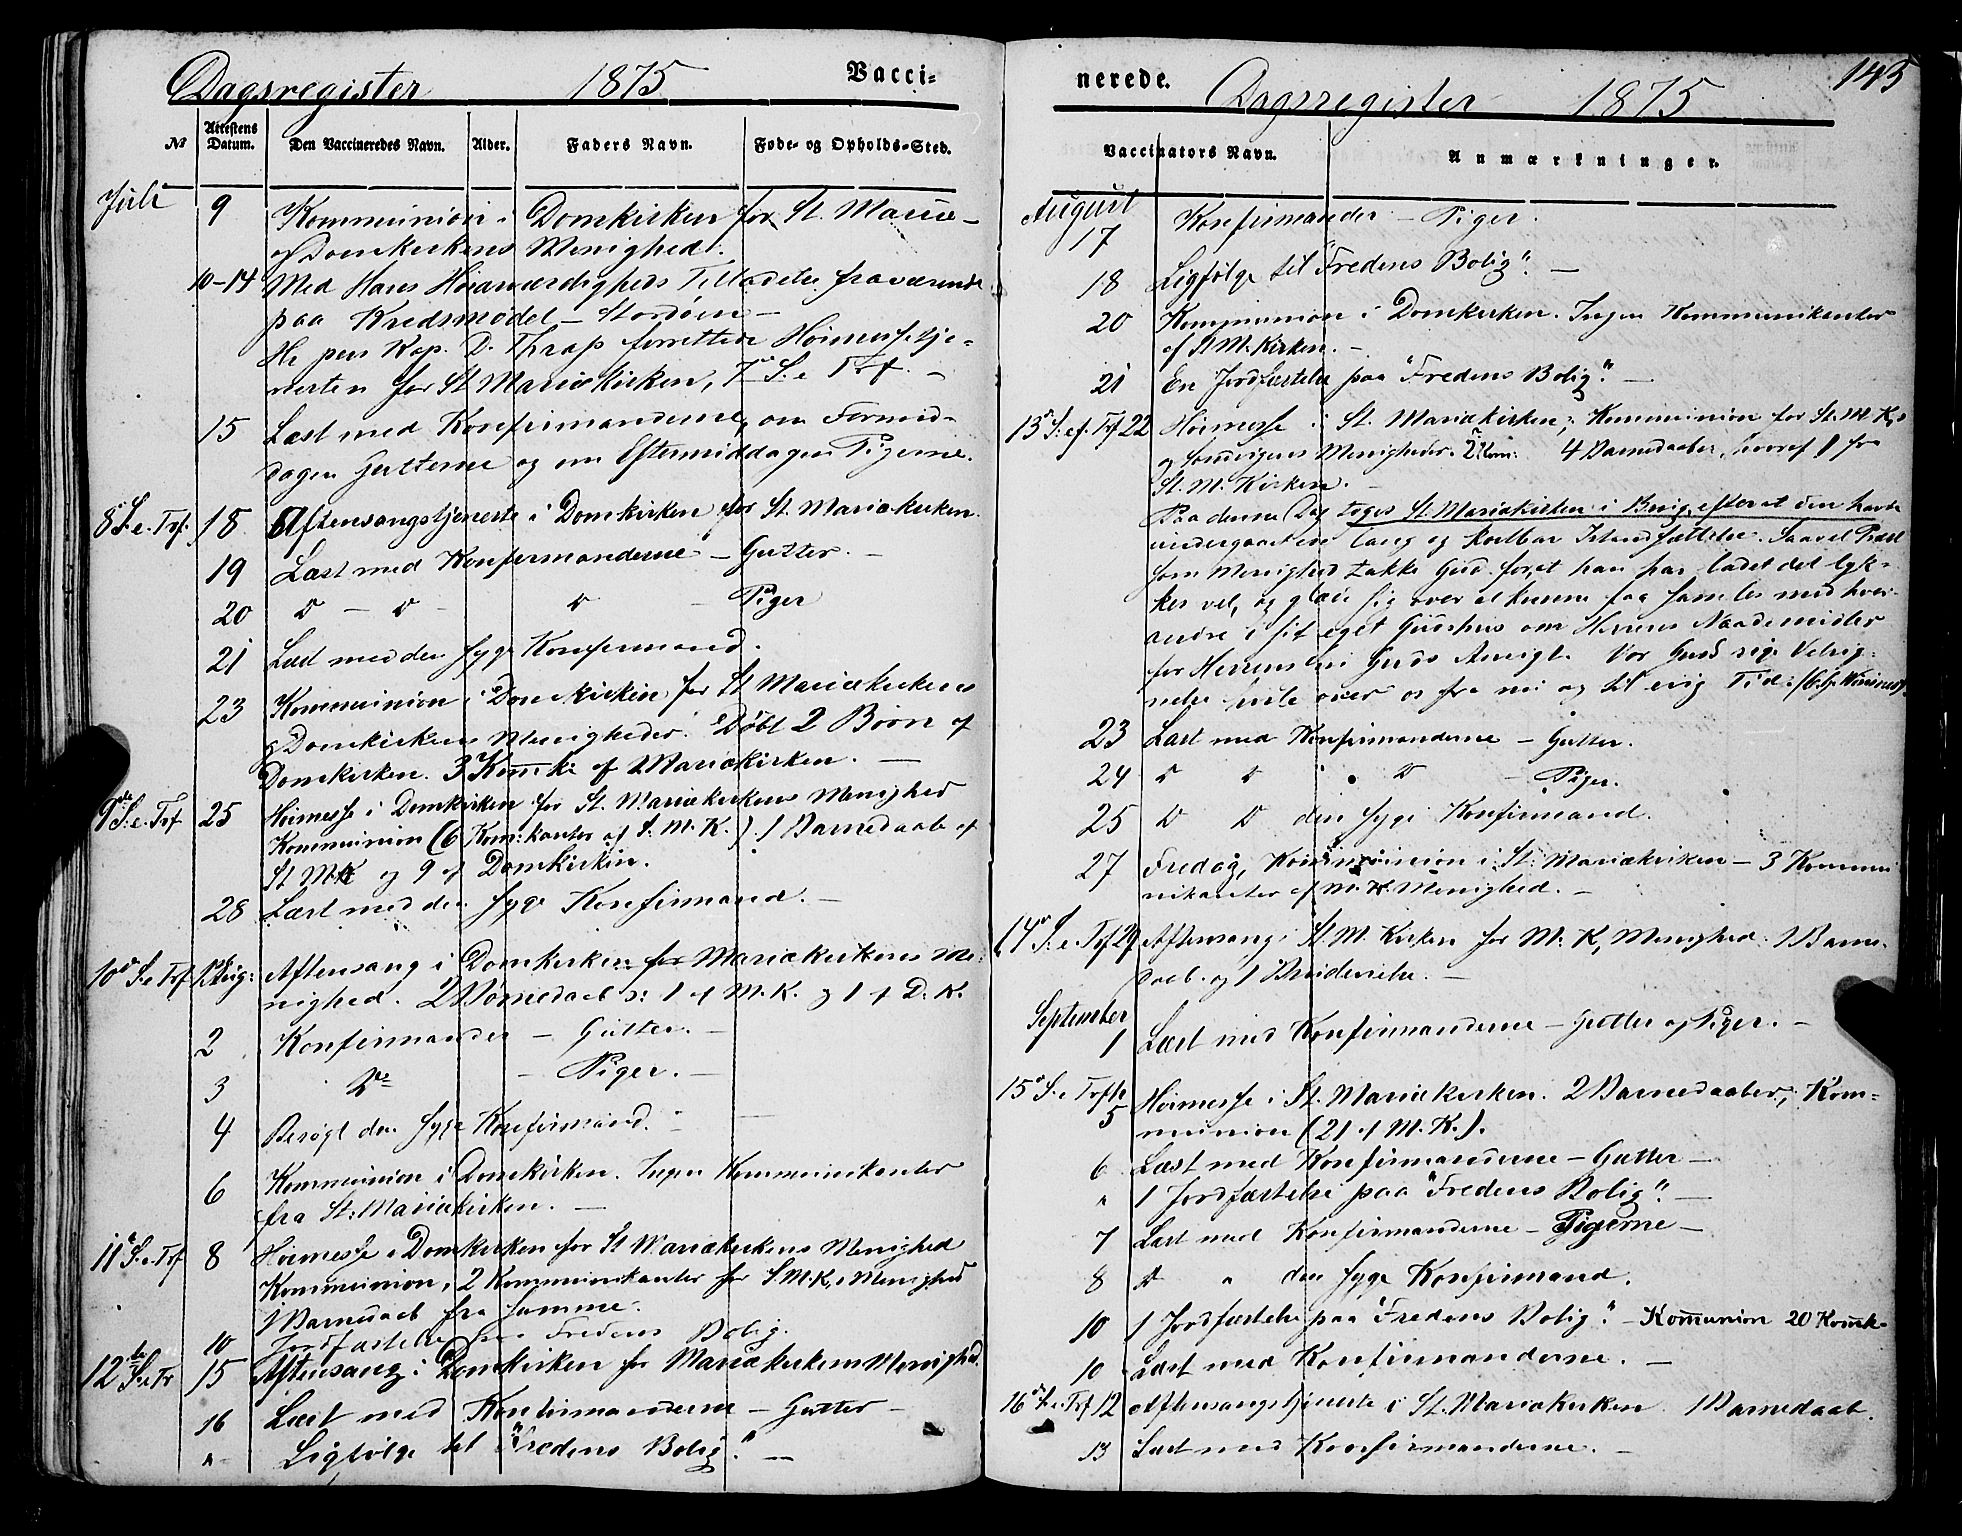 Dagsregister 1875 Vacci-
№ Attestens Datum. Den Vaccineredes Navn. Alder. Faders Navn. Føde- og Opholds-Sted.
Juli 9 Kommunion i Domkirken for St. Mariæ-
og Domkirkens Menighed.
10-14 Med Hans Høiærværdigheds Tilladelse fraværende
paa Kredsmødet - Stordøen -
Hr pers Kap. D. Thrap forrettede Høimessetje-
nesten for St Mariækirken, 7de S. e Trf. -
15 Læst med Konfirmanderne, om Formid-
dagen Gutterne og om Eftermiddagen Pigerne.
8de S. e. Trf. 18 Aftensangstjeneste i Domkirken for St. Mariækirken.
19 Læst med Konfirmanderne - Gutter. -
20 D - D - D - Piger
21 Læst med den syge Konfirmand.
23 Kommunion i Domkirken for St Mariækirkens
og Domkirkens Menigheder. Døbt 2 Børn af
Domkirken. 3 Komke af Mariækirken. -
9de S. e. Trf 25 Høimesse i Domkirken for St. Mariækirkens Menighed
Kommunion (6 Kom:kanter af S. M. K.). 1 Barnedaab af
St M K og 9 af Domkirken.
28 Læst med den syge Konfirmand. -
10de S. e Trf 1 Aug: Aftensang i Domkirken for Mariækirkens Me-
nighed. 2 Barnedaab: 1 af M. K. og 1 af D. K.
2 Konfirmander - Gutter. -
3 Do - Piger. -
4 Besøgt den syge Konfirmand. -
6 Kommunion i Domkirken. Ingen Kommunikanter
fra St: Mariækirken. -
11te S. e Trf 8 Høimesse i Domkirken for St Mariækirkens Menighed
Kommunion, 2 Kommunikanter for S. M. K. Menighed
1 Barnedaab fra samme.
10 Jordfæstelse paa Fredens Bolig.
12te S. e Tr 15 Aftensang i Domkirken for Mariækirkens Menighed.
16 Læst med Konfirmanderne - Gutter -
" Ligfølge til "Fredens Bolig." -
nerede. Dagsregister 1875 145
Vaccinators Navn. Anmærkninger.
August
17 Konfirmander - Piger.
18 Ligfølge til "Fredens Bolig". -
20 Kommunion i Domkirken. Ingen Kommunikanter
af St M. Kirken. -
21 En Jordfæstelse paa "Fredens Bolig". -
13de S. ef. Trf 22 Høimesse i St. Mariækirken; Kommunion for St. M. K.s
og Sandvigens Menigheder. 2 Kom: 4 Barnedaaber, hvoraf 1 fra
St. M. Kirken. -
Paa denne Dag toges St. Mariækirken i Brug efterat den havde
undergaaet en lang og kostbar Istandsættelse. Saavel Præst
som Menighed takke Gud for, at han har ladet det lyk-
kes vel, og glæde sig over at kunne faa samles med hver-
andre i sit eget Gudshus om Herrens Naademidler
for Herren sin Guds Ansigt. Vor Gud sige Velsig-
nelse hvile over os fra nu og til evig Tid.
23 Læst med Konfirmanderne - Gutter.
24 D D D - Piger.
25 D D den syge Konfirmand.
27 Fredag, Kommunion i St. Mariækirken - 3 Kommu
nikanter af M. K. Menighed. -
14de S. e. Trf 29 Aftensang i St. M. Kirken for M. K. Menighed. 1 Barne-
daab og 1 Brudevielse. -
September
1 Læst med Konfirmanderne - Gutter og Piger. -
15de S. e Trf
5 Høimesse i St. Mariækirken. 2 Barnedaaber; Kom-
munion (21 af M. K.).
6 Læst med Konfirmanderne - Gutter -
" 1 Jordfæstelse paa "Fredens Bolig". -
7 Læst med Konfirmanderne - Pigerne -
8 D " den syge Konfirmand.
10 1 Jordfæstelse paa "Fredens Bolig." - Kommunion 20 Komk
10 Læst med Konfirmanderne. -
16de S. e. Trf 12 Aftensangstjeneste i St. Mariækirken 1 Barnedaab.
13 Læst med Konfirmanderne. -